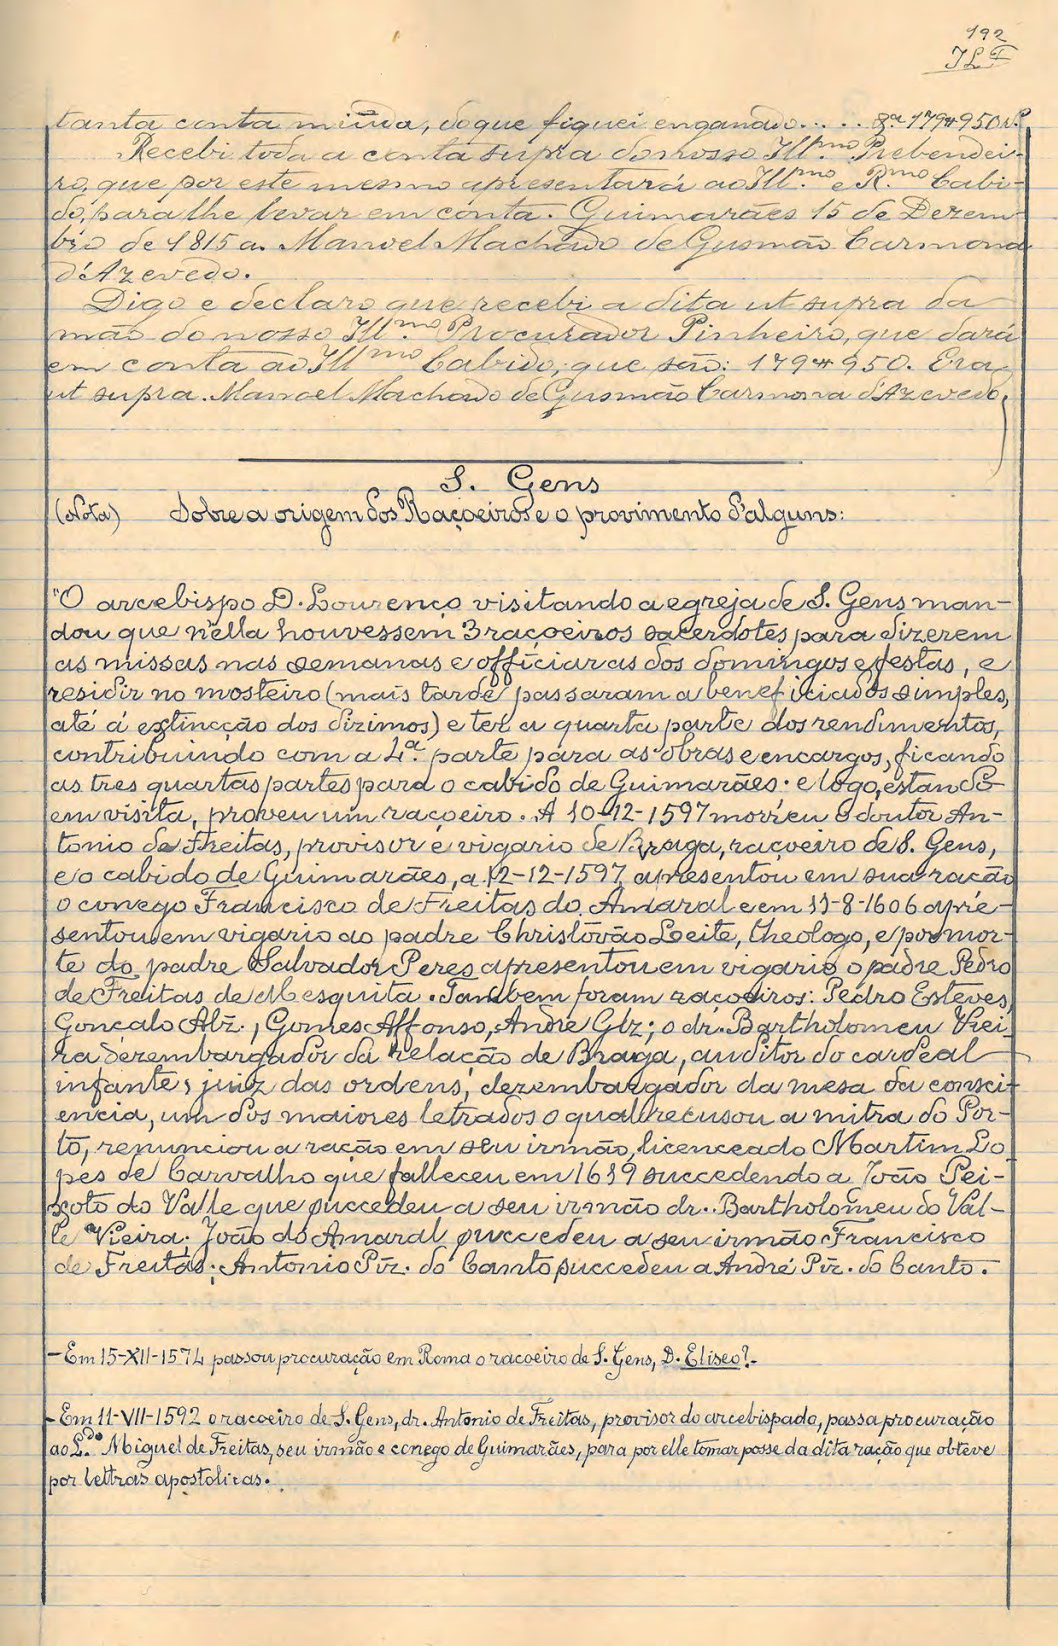 192
JLF
tanta conta miuda, do que fiquei enganado..... 179#950 rs
Recebi toda a conta supra do nosso Ill.mo Prebendei-
ro, que por este mesmo apresentará ao Ill.mo e R.mo Cabi-
do, para lhe levar em conta. Guimarães 15 de Dezem-
bro de 1815 a. Manoel Machado de Gusmão Carmona
d'Azevedo.
Digo e declaro que recebi a dita ut supra da
mão do nosso Ill.mo Procurador Pinheiro, que dará
em conta ao Ill.mo Cabido, que são: 179#950. Era
ut supra. Manoel Machado de Gusmão Carmona d'Azevedo,
S. Gens
(Nota) Sobre a origem dos Raçoeiros e o provimento d'alguns:
"O arcebispo D. Lourenço visitando a egreja de S. Gens man-
dou que n'ella houvessem 3 raçoeiros sacerdotes para dizerem
as missas nas semanas e officiar as dos domingos e festas, e
residir no mosteiro (mais tarde passaram a beneficiados simples,
até á extincção dos dizimos) e ter a quarta parte dos rendimentos,
contribuindo com a 4.ª parte para as obras e encargos, ficando
as tres quartas partes para o cabido de Guimarães; e logo, estando
em visita, proveu um raçoeiro. A 10-12-1597 morreu o doutor An-
tonio de Freitas, provisor e vigario de Braga, raçoeiro de S. Gens,
e o cabido de Guimarães, a 12-12-1597 apresentou em sua ração
o conego Francisco de Freitas do Amaral e em 11-8-1606 apre-
sentou em vigario ao padre Christóvão Leite, theologo, e por mor-
te do padre Salvador Peres apresentou em vigario o padre Pedro
de Freitas de Mesquita. Tambem foram raçoeiros: Pedro Esteves,
Gonçalo Alz., Gomes Affonso, André Glz; o dr. Bartholomeu Viei-
ra dezembargador da relação de Braga, auditor do cardeal
infante, juiz das ordens, dezembargador da mesa da consci-
encia, um dos maiores letrados o qual recusou a mitra do Por-
to, renunciou a ração em seu irmão, licenceado Martim Lo
pes de Carvalho que falleceu em 1619 succedendo a João Pei-
xoto do Valle que succedeu a seu irmão dr. Bartholomeu do Val-
le Vieira; João do Amaral succedeu a seu irmão Francisco
de Freitas; Antonio Piz. do Canto succedeu a André Piz. do Canto.
- Em 15-XII-1574 passou procuração em Roma o racoeiro de S. Gens, D. Eliseo?.-
- Em 11-VII-1592 o racoeiro de S. Gens, dr. Antonio de Freitas, provisor do arcebispado, passa procuração
ao L.do Miguel de Freitas, seu irmão e conego de Guimarães, para por elle tomar posse da dita ração que obteve
por lettras apostolicas.